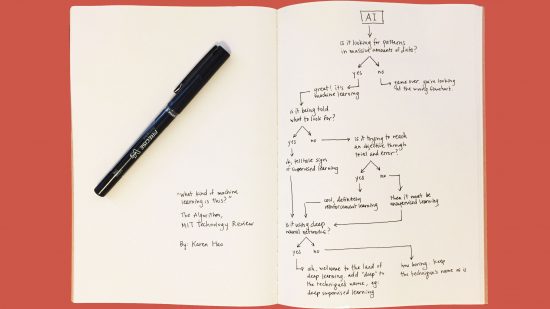 AI
Is it looking for patterns
in massive amounts of data?
yes
no
great! it's
machine learning
game over. you're looking
at the wrong flowchart.
is it being told
what to look for?
yes
no
is it trying to reach
an objective through
trial and error?
ah, telltale sign
of supervised learning
yes
no
cool, definitely
reinforcement learning
then it must be
unsupervised learning
is it using deep
neural networks?
yes
no
oh, welcome to the land of
deep learning. add "deep" to
the technique's name, eg:
deep supervised learning
how boring. keep
the technique's name as is
"What kind of machine
learning is this?"
The Algorithm,
MIT Technology Review
By: Karen Hao